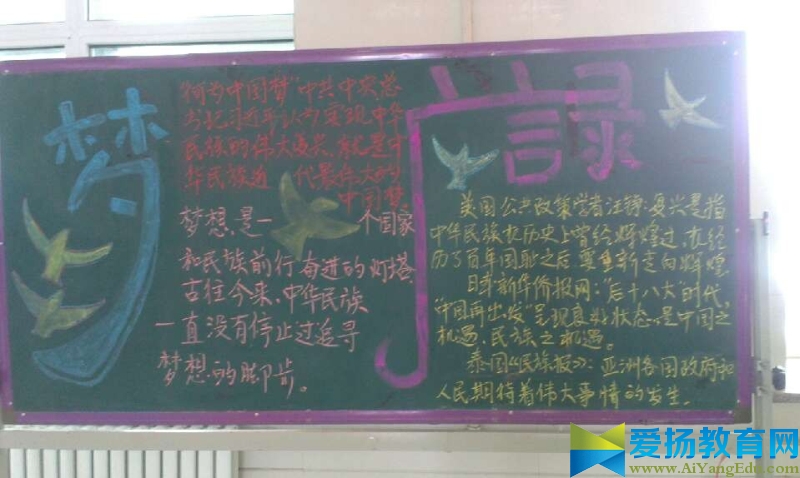 梦
何为中国梦"中共中央总
书记习近平认为实现中华
民族的伟大复兴,就是中
华民族近 代最伟大的
中国梦
梦想,是一 个国家
和民族前行奋进的灯塔
古往今来,中华民族
一直没有停止过追寻
梦想的脚步。
美国公共政策学者汪铮:复兴是指
中华民族在历史上曾经辉煌过,在经
历了百年国耻之后要重新走向辉煌
日本新华侨报网:"后十八大"时代,
"中国再出发"呈现良好状态,是中国之
机遇、民族之机遇。
泰国《民族报》:亚洲各国政府和
人民期待着伟大事情的发生.
爱扬教育网
www.AiYangEdu.com